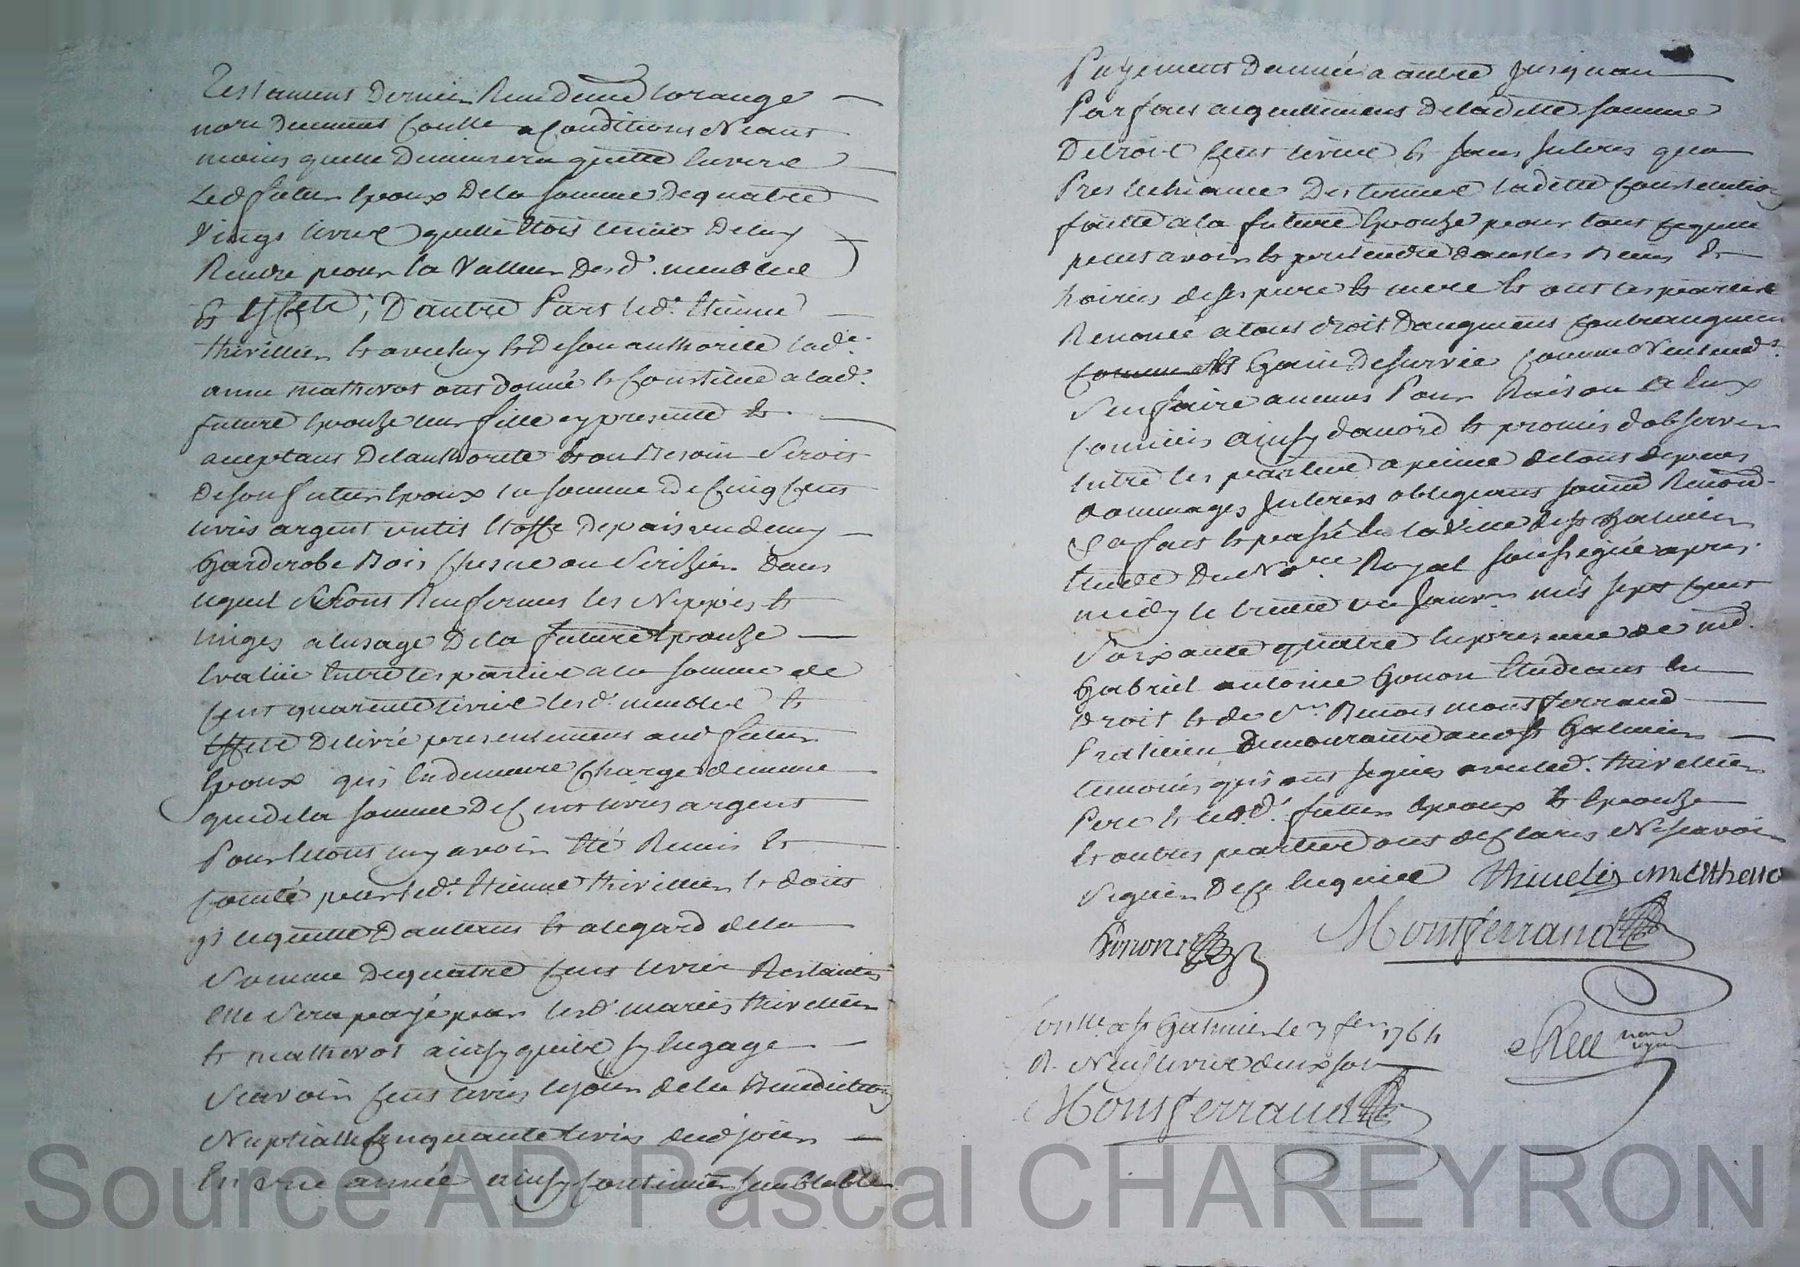 Testament dernier Rendeme lorange
nore dumens Conlle a Conditions Neant
moins quelle demeurera quitte envers
Led futur Epoux De la somme De quatre
Vingt livres quelle etois tenue De luy
Rendre pour la Valleur Des d. meubles
Et Effets; D'autre Part led. Etienne
thivellier Et avecluy Et De son authorité lad.e
anne mathevot ont donné Et Constitué a lad.
future Epouze leur fille cy presente Et
acceptant De lauthorité Et ou Besoin Serois
De son futur Epoux la somme De Cinq Cens
livres argent un lit Etoffe De pais un demy
Garderobe Bois Chesne ou Serizier Dans
lequel Seront Renfermés les Nippes Et
linges a lusage De la future Epouze
Evalué Entre les parties a la somme de
Cent quarente livres lesd. meubles Et
Effets Delivré presentement aud futur
Epoux qui En demeure Chargé de meme
que de la somme De Cent livres argent
Pour le tout luy avoir Eté Remis Et
Comté par led. Etienne thivellier Et dont
Il le quitte D'autant Et a legard de la
Somme De quatre Cens livres Restantes
Elle Sera payé par lesd. mariés thivellier
Et mathevot ainsy quils sy Engage
Scavoir Cent livres le jour de la Benediction
Nuptialle Cinquante livres dud jour
En une année ainsy Continuer semblable
Payement D'année a autre jusquau
Parfait aquittement De ladette somme
De trois Cens livres Et sans Interes qua
Pres lechéance Des termes ladette Constitution
faitte a la future Epouze pour tout ce quelle
peut avoir Et pretendre dans les Biens Et
hoiries de ses pere Et mere Et ont les parties
Renoncé a tous droit D'augment Contreaugment
Comme Et Gain De survie Comme N'entend.t
S'en faire aucuns Pour Raison de Eux
Convenus ainsy d'acord Et promis d'observer
Entre les parties a peine de tous depens
dommages Interes obligeant soumett Renond.
Ça fait Et passé En la Ville de St Galmier
Etude Du No.re Royal soussigné apres
midy le trente un Janv.r mil sept Cent
Soixante quatre En presence de me.
Gabriel antoine Gonon Etudiant En
droit Et de S.r Benois montferrand
Praticien Demourants aud St Galmier
temoins qui ont signés avec led. thivellier
Pere Et led. futur Epoux Et Epouze
Et autres parties ont declarés Ne scavoir
Signer De ce Enquis thivelier mathevo
Gonon Montferrand
Con.lle a St Galmier le 7 fev 1764
R. Neuf livres deux sols
Montferrand
Source AD Pascal CHAREYRON